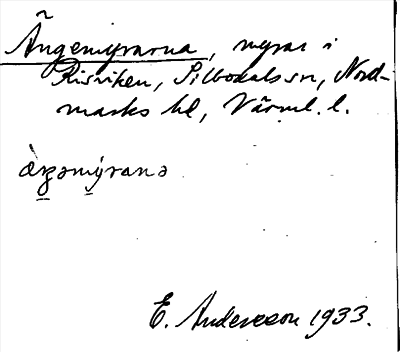 Ängemyrarna, myrar i
Risviken, Silbodals sn, Nord-
marks hd, Värml. l.
æ̀ŋəmýranə
E. Andersson 1933.